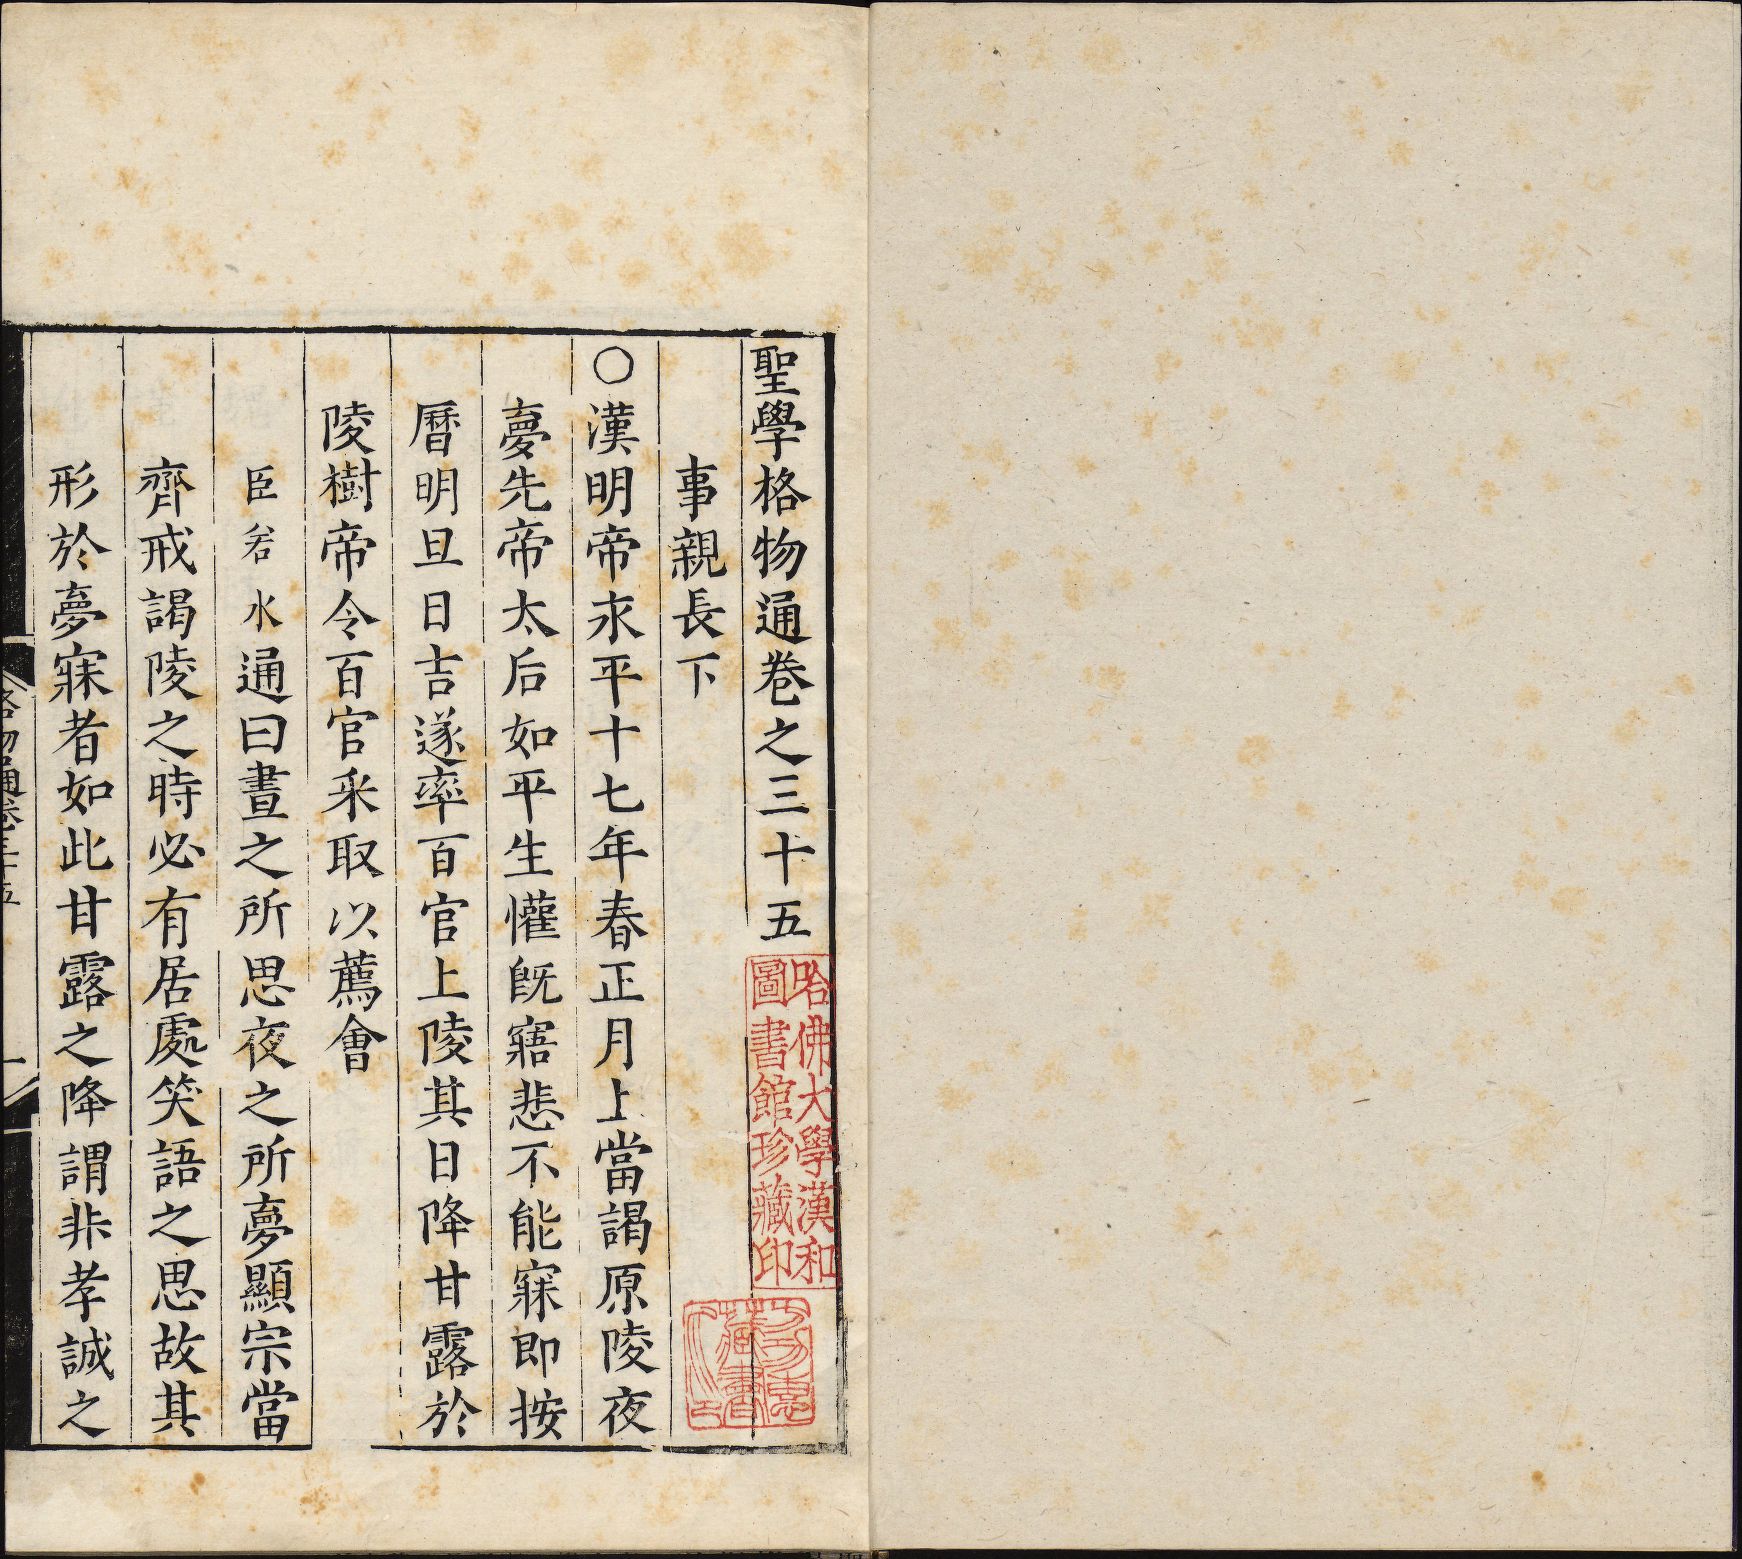 聖學格物通卷之三十五
事親長下
○漢明帝永平十七年春正月上當謁原陵夜
夢先帝太后如平生懽旣寤悲不能寐即按
曆明旦日吉遂率百官上陵其日降甘露於
陵樹帝令百官采取以薦會
臣若水通曰晝之所思夜之所夢顯宗當
齊戒謁陵之時必有居處笑語之思故其
形於夢寐者如此甘露之降謂非孝誠之
格物通卷三十五
一
哈佛大學漢和
圖書館珍藏印
藏書